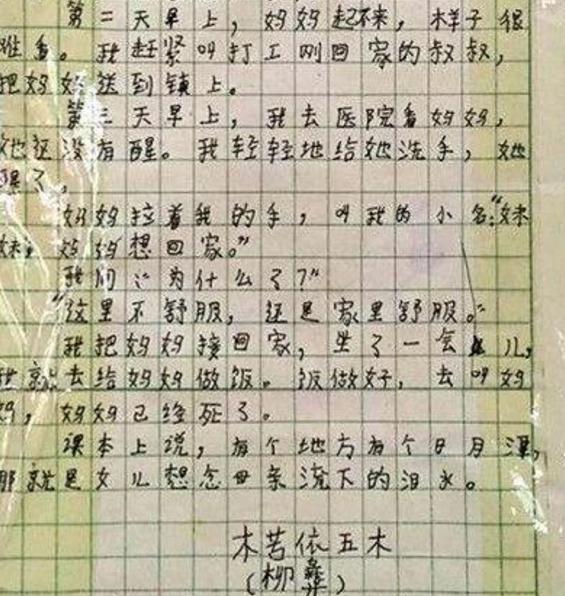 第二天早上，妈妈起不来，样子很
难看。我赶紧叫打工刚回家的叔叔，
把妈妈送到镇上。
第三天早上，我去医院看妈妈，
她还没有醒。我轻轻地给她洗手，她
醒了。
妈妈拉着我的手，叫我的小名：“妹
妹，妈妈想回家。”
我问：“为什么了？”
“这里不舒服，还是家里舒服。”
我把妈妈接回家，坐了一会儿，
我就去给妈妈做饭。饭做好，去叫妈
妈，妈妈已经死了。
课本上说，有个地方有个日月潭，
那就是女儿想念母亲流下的泪水。
木苦依五木
（柳彝）